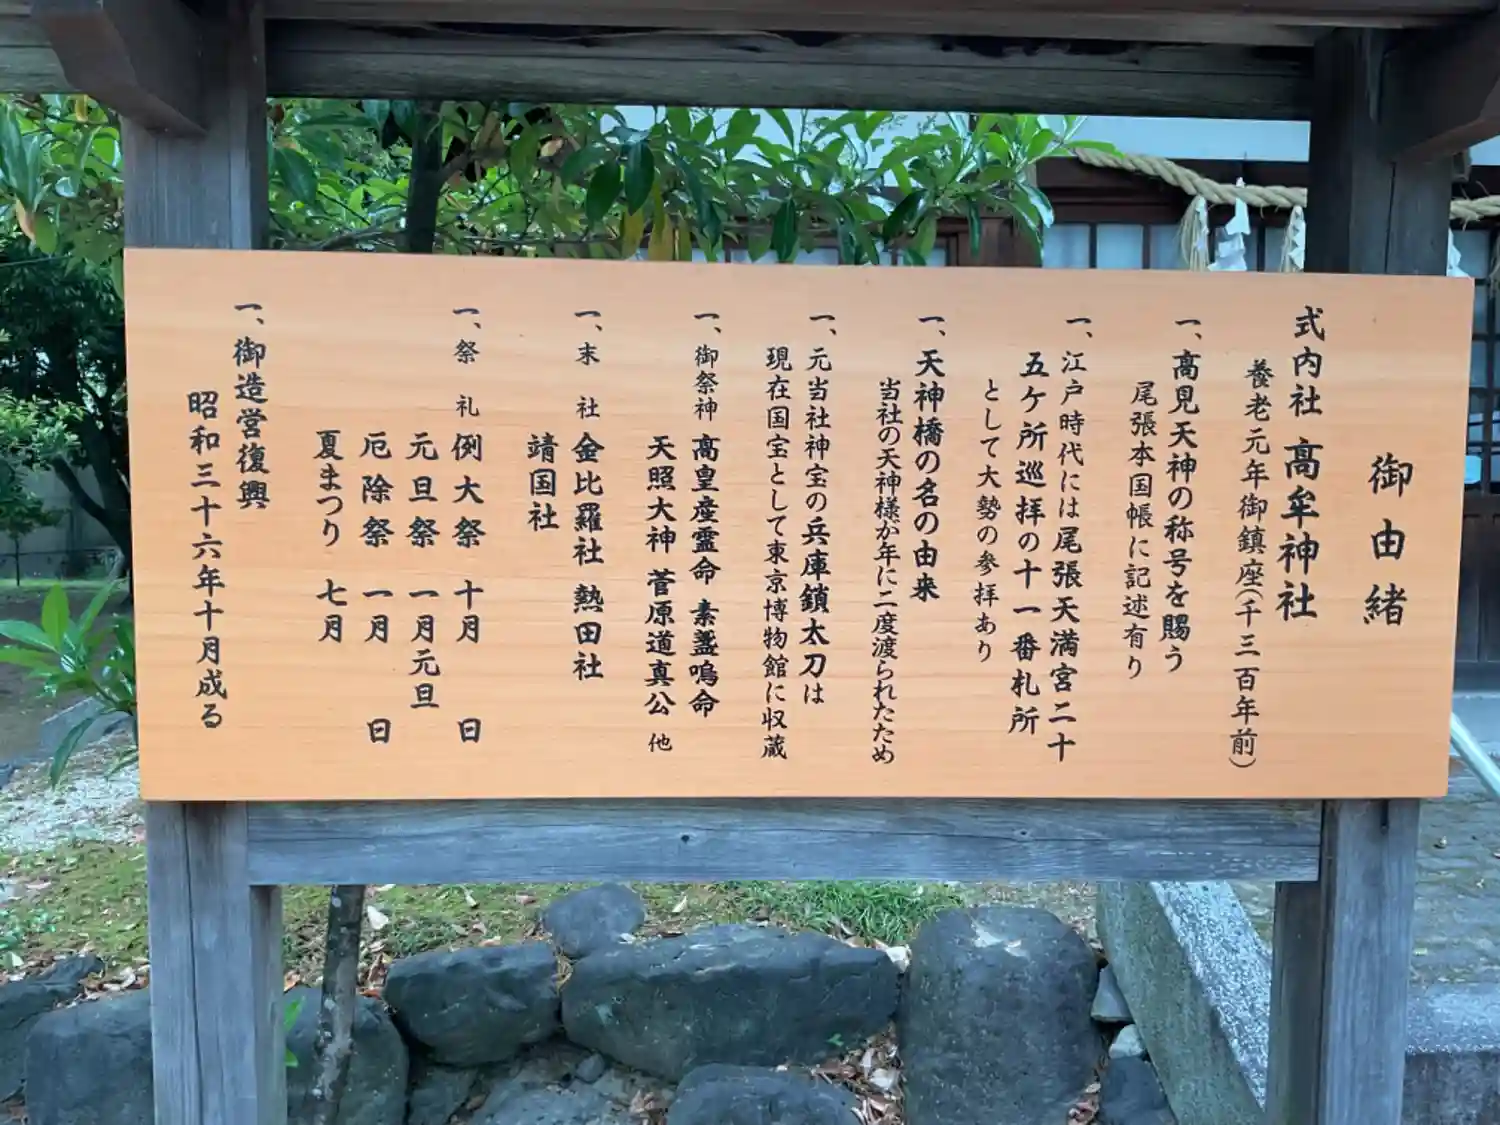 御由緒
式内社 高牟神社
養老元年御鎮座(千三百年前)
一、高見天神の称号を賜う
尾張本国帳に記述有り
一、江戸時代には尾張天満宮二十
五ケ所巡拝の十一番札所
として大勢の参拝あり
一、天神橋の名の由来
当社の天神様が年に二度渡られたため
一、元当社神宝の兵庫鎖太刀は
現在国宝として東京博物館に収蔵
一、御祭神 高皇産霊命 素盞嗚命
天照大神 菅原道真公 他
一、末 社 金比羅社 熱田社
靖国社
一、祭 礼 例大祭 十月 日
元旦祭 一月元旦
厄除祭 一月 日
夏まつり 七月
一、御造営復興
昭和三十六年十月成る